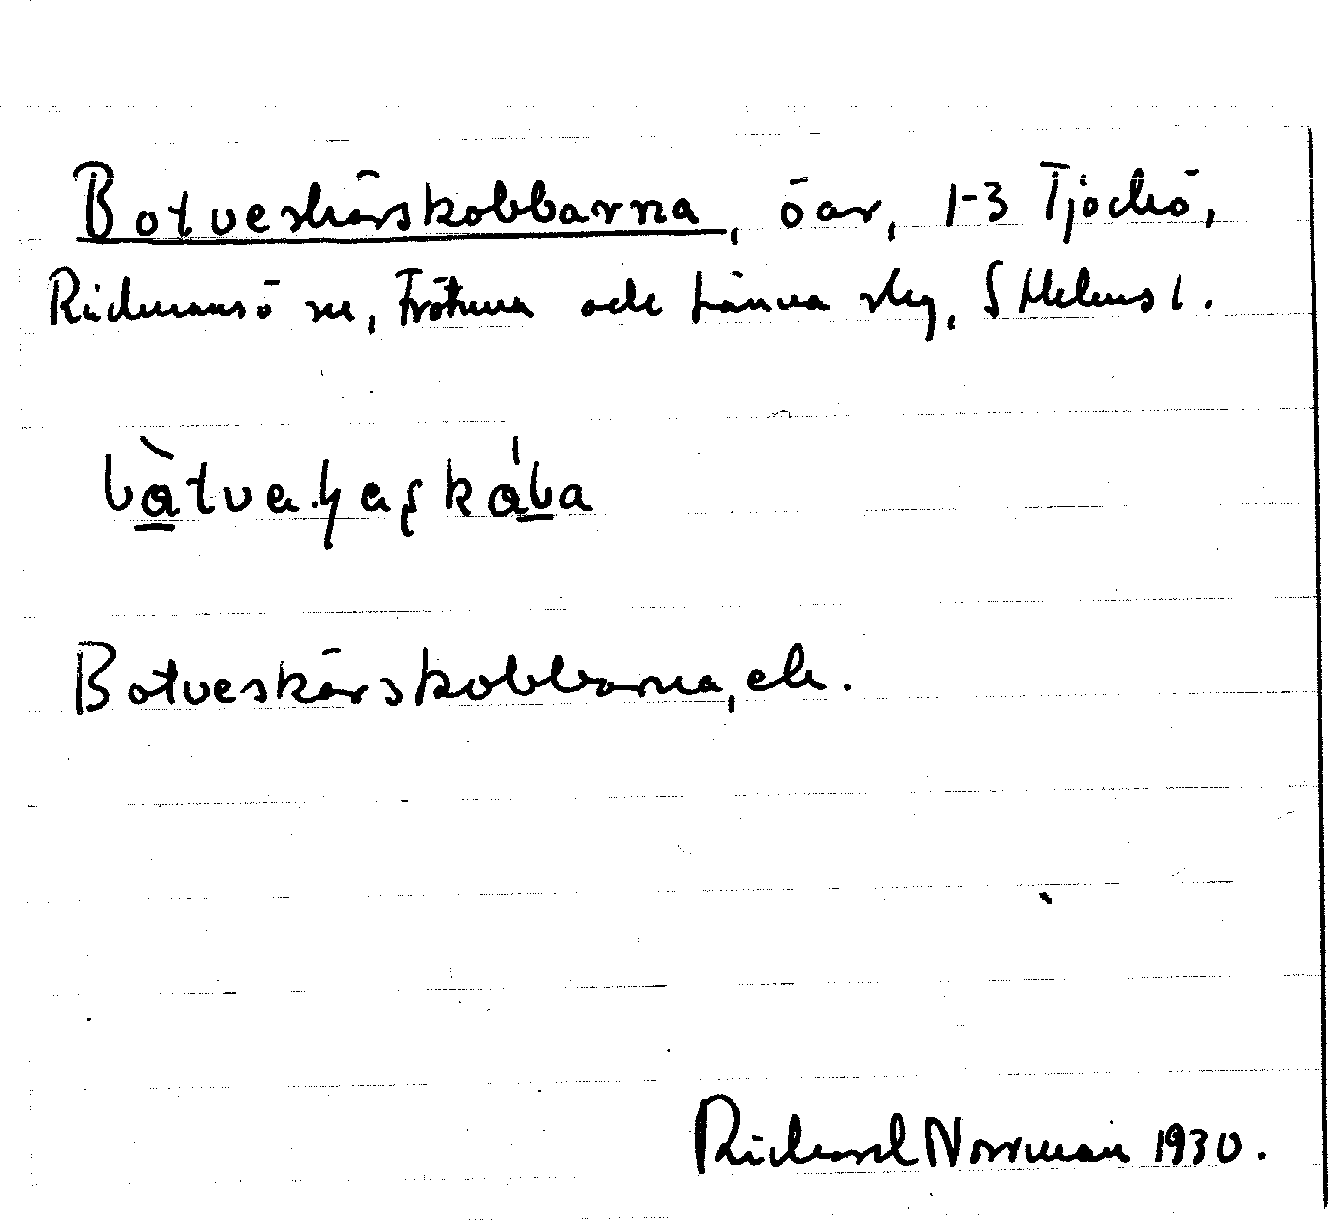 Botveskärskobbarna, öar, 1-3 Tjockö,
Rådmansö sn, Frötuna och Länna skg, S Sthlms l.
Botveskärskobbarna, ek.
Richard Norrman 1930.